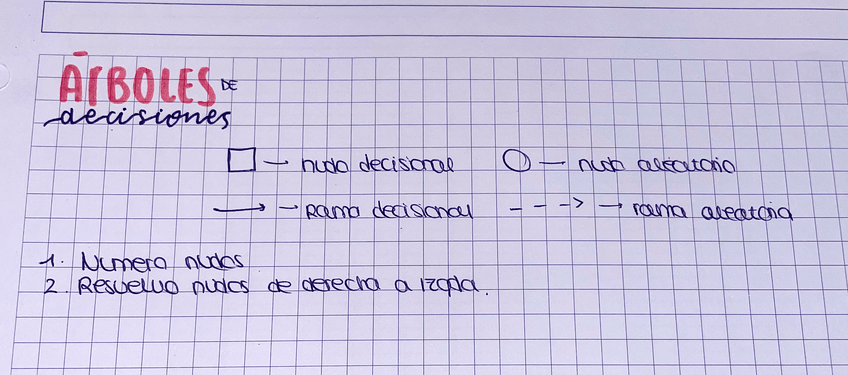 ÁRBOLES DE
decisiones
□ — nudo decisional ○ — nudo aleatorio
→ — Rama decisional - - -> → rama aleatoria
1. Numero nudos
2. Resuelvo nudos de derecha a izqda.